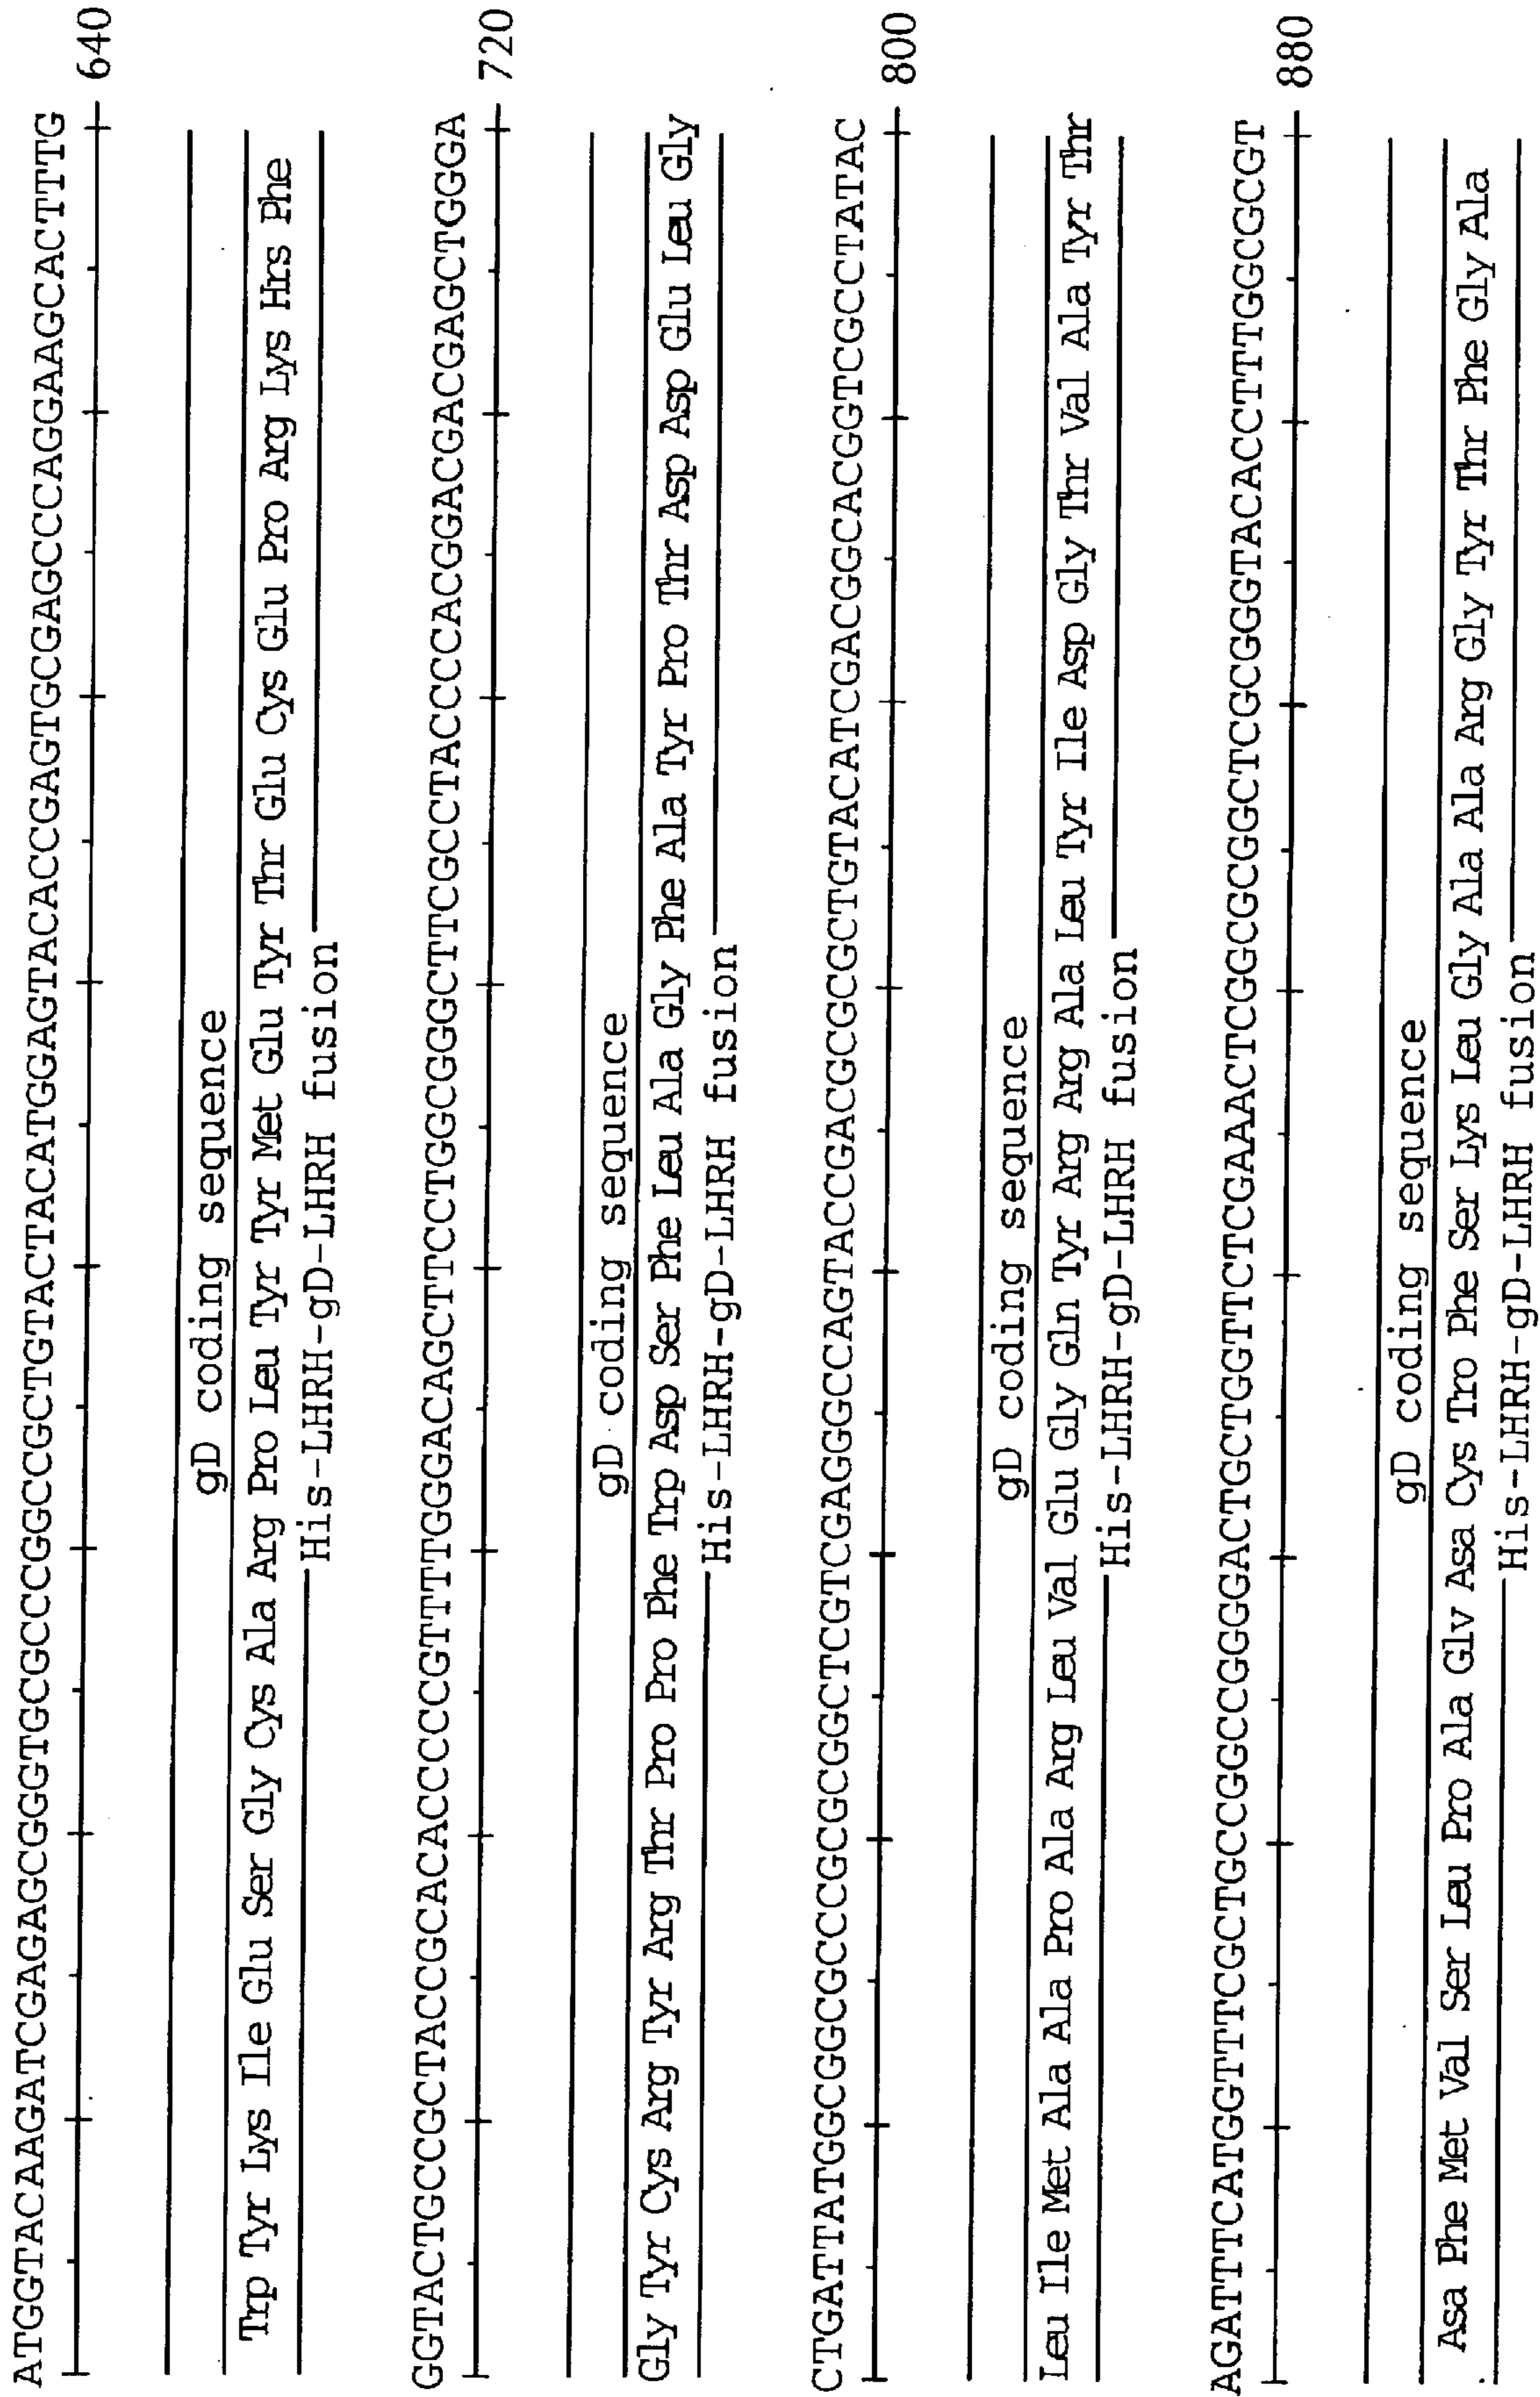 ATGGTACAAGATCGAGAGCGGGTGCGCCCGGCCGCTGTACTACATGGAGTACACCGAGTGCGAGCCCAGGAAGCACTTTG
640
gD coding sequence
Trp Tyr Lys Ile Glu Ser Gly Cys Ala Arg Pro Leu Tyr Tyr Met Glu Tyr Thr Glu Cys Glu Pro Arg Lys Hrs Phe
His-LHRH-gD-LHRH fusion
GGTACTGCCGCTACCGCACACCCCCGTTTTGGGACAGCTTCCTGGCGGGCTTCGCCTACCCCACGGACGACGACGAGCTGGGA
720
gD coding sequence
Gly Tyr Cys Arg Tyr Arg Thr Pro Pro Phe Trp Asp Ser Phe Leu Ala Gly Phe Ala Tyr Pro Thr Asp Asp Glu Leu Gly
His-LHRH-gD-LHRH fusion
CTGATTATGGCGGCGCCCGCGCGGCTCGTCGAGGGCCAGTACCGACGCGCGCTGTACATCGACGGCACGGTCGCCTATAC
800
gD coding sequence
Leu Ile Met Ala Ala Pro Ala Arg Leu Val Glu Gly Gln Tyr Arg Arg Ala Leu Tyr Ile Asp Gly Thr Val Ala Tyr Thr
His-LHRH-gD-LHRH fusion
AGATTTCATGGTTTCGCTGCCGGCCGGGGACTGCTGGTTCTCGAAACTCGGCGCGGCTCGCGGGTACACCTTTGGCGCGT
880
gD coding sequence
Asa Phe Met Val Ser Leu Pro Ala Glv Asa Cys Tro Phe Ser Lys Leu Gly Ala Ala Arg Gly Tyr Thr Phe Gly Ala
His-LHRH-gD-LHRH fusion